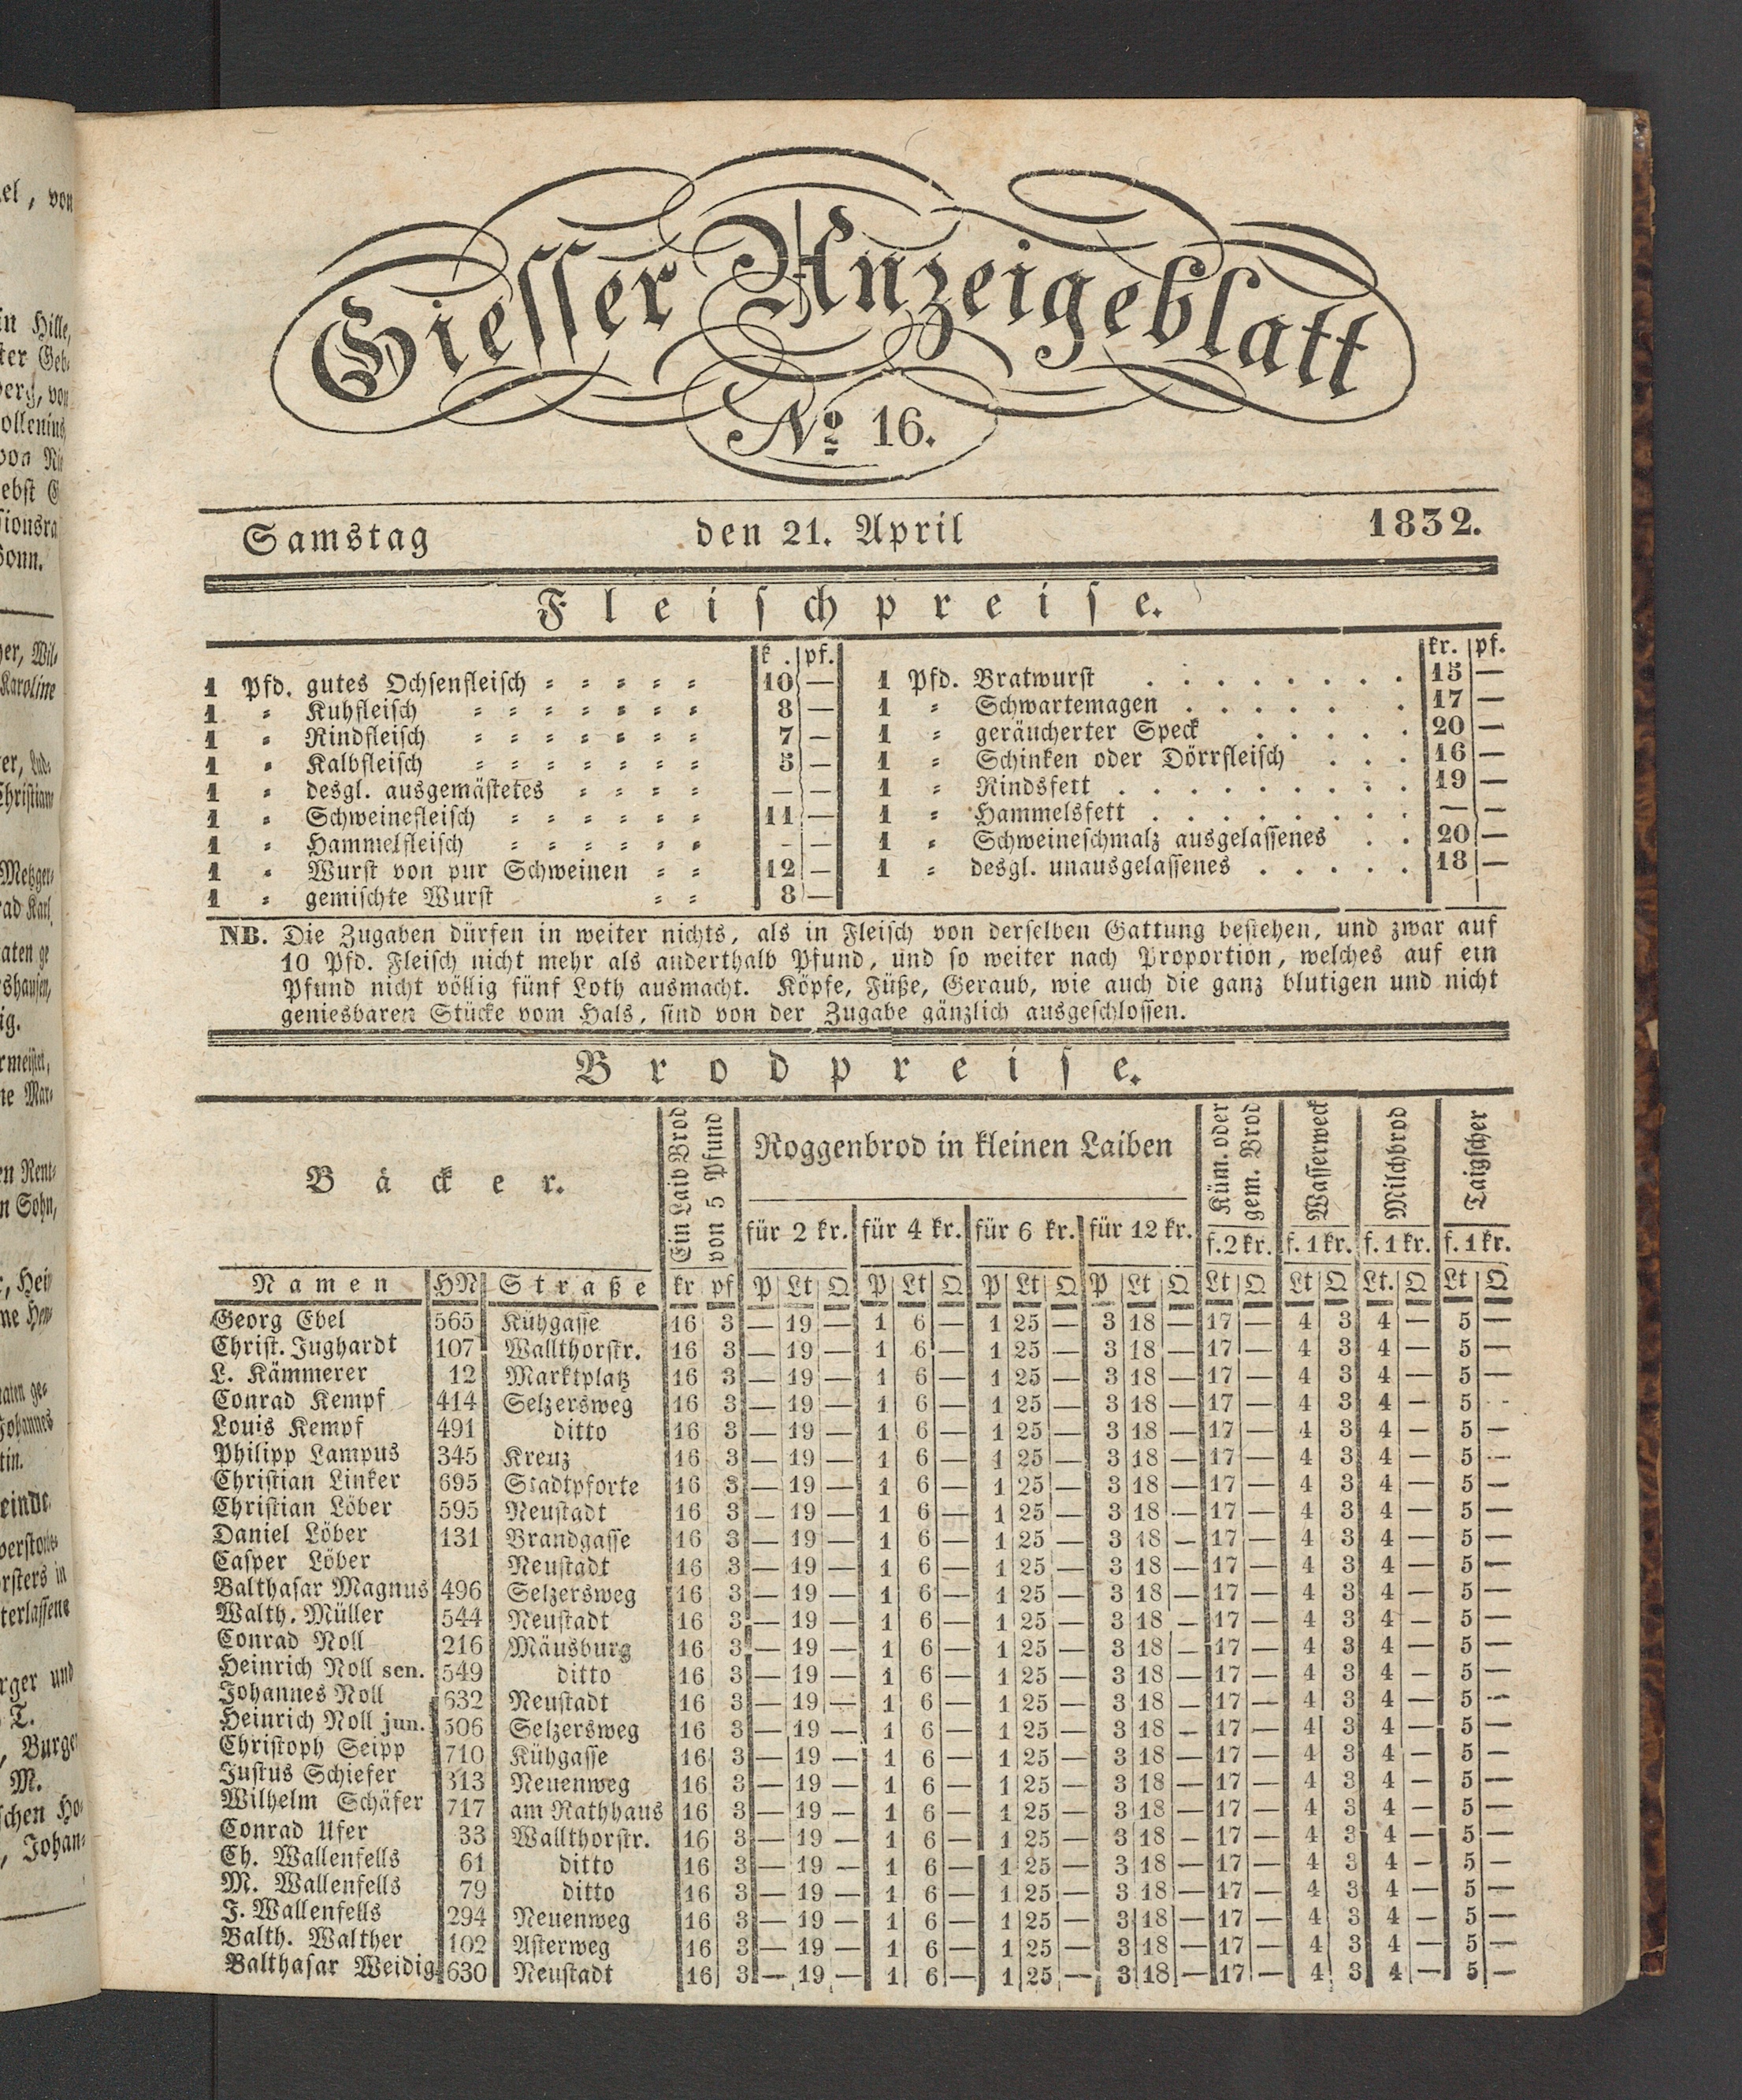 Giesser Anzeigeblatt
No 16.
Samstag den 21. April 1832.
Fleischpreise.
k . pf. kr. pf.
1 Pfd. gutes Ochsenfleisch = = = = = 10 — 1 Pfd. Bratwurst . . . . . . . . 15 —
1 = Kuhfleisch = = = = = = = 8 — 1 = Schwartemagen . . . . . . 17 —
1 = Rindfleisch = = = = = = = 7 — 1 = geräucherter Speck . . . . . 20 —
1 = Kalbfleisch = = = = = = = 5 — 1 = Schinken oder Dörrfleisch . . . 16 —
1 = desgl. ausgemästetes = = = = — — 1 = Rindsfett . . . . . . . . . 19 —
1 = Schweinefleisch = = = = = = 11 — 1 = Hammelsfett . . . . . . . . — —
1 = Hammelfleisch = = = = = = — — 1 = Schweineschmalz ausgelassenes . . 20 —
1 = Wurst von pur Schweinen = = 12 — 1 = desgl. unausgelassenes . . . . . 18 —
1 = gemischte Wurst = = 8 —
NB. Die Zugaben dürfen in weiter nichts, als in Fleisch von derselben Gattung bestehen, und zwar auf
10 Pfd. Fleisch nicht mehr als anderthalb Pfund, und so weiter nach Proportion, welches auf ein
Pfund nicht völlig fünf Loth ausmacht. Köpfe, Füße, Geraub, wie auch die ganz blutigen und nicht
geniesbaren Stücke vom Hals, sind von der Zugabe gänzlich ausgeschlossen.
Brodpreise.
Bäcker.
Ein Laib Brod
von 5 Pfund
Roggenbrod in kleinen Laiben
Küm. oder
gem. Brod
Wasserweck
Milchbrod
Taigscher
für 2 kr. für 4 kr. für 6 kr. für 12 kr. f. 2 kr. f. 1 kr. f. 1 kr. f. 1 kr.
Namen HN Straße kr pf P Lt Q P Lt Q P Lt Q P Lt Q Lt Q Lt Q Lt. Q Lt Q
Georg Ebel 565 Kühgasse 16 3 — 19 — 1 6 — 1 25 — 3 18 — 17 — 4 3 4 — 5 —
Christ. Jughardt 107 Wallthorstr. 16 3 — 19 — 1 6 — 1 25 — 3 18 — 17 — 4 3 4 — 5 —
L. Kämmerer 12 Marktplatz 16 3 — 19 — 1 6 — 1 25 — 3 18 — 17 — 4 3 4 — 5 —
Conrad Kempf 414 Selzersweg 16 3 — 19 — 1 6 — 1 25 — 3 18 — 17 — 4 3 4 — 5 —
Louis Kempf 491 ditto 16 3 — 19 — 1 6 — 1 25 — 3 18 — 17 — 4 3 4 — 5 —
Philipp Lampus 345 Kreuz 16 3 — 19 — 1 6 — 1 25 — 3 18 — 17 — 4 3 4 — 5 —
Christian Linker 695 Stadtpforte 16 3 — 19 — 1 6 — 1 25 — 3 18 — 17 — 4 3 4 — 5 —
Christian Löber 595 Neustadt 16 3 — 19 — 1 6 — 1 25 — 3 18 — 17 — 4 3 4 — 5 —
Daniel Löber 131 Brandgasse 16 3 — 19 — 1 6 — 1 25 — 3 18 — 17 — 4 3 4 — 5 —
Casper Löber Neustadt 16 3 — 19 — 1 6 — 1 25 — 3 18 — 17 — 4 3 4 — 5 —
Balthasar Magnus 496 Selzersweg 16 3 — 19 — 1 6 — 1 25 — 3 18 — 17 — 4 3 4 — 5 —
Walth. Müller 544 Neustadt 16 3 — 19 — 1 6 — 1 25 — 3 18 — 17 — 4 3 4 — 5 —
Conrad Noll 216 Mäusburg 16 3 — 19 — 1 6 — 1 25 — 3 18 — 17 — 4 3 4 — 5 —
Heinrich Noll sen. 549 ditto 16 3 — 19 — 1 6 — 1 25 — 3 18 — 17 — 4 3 4 — 5 —
Johannes Noll 632 Neustadt 16 3 — 19 — 1 6 — 1 25 — 3 18 — 17 — 4 3 4 — 5 —
Heinrich Noll jun. 506 Selzersweg 16 3 — 19 — 1 6 — 1 25 — 3 18 — 17 — 4 3 4 — 5 —
Christoph Seipp 710 Kühgasse 16 3 — 19 — 1 6 — 1 25 — 3 18 — 17 — 4 3 4 — 5 —
Justus Schiefer 313 Neuenweg 16 3 — 19 — 1 6 — 1 25 — 3 18 — 17 — 4 3 4 — 5 —
Wilhelm Schäfer 717 am Rathhaus 16 3 — 19 — 1 6 — 1 25 — 3 18 — 17 — 4 3 4 — 5 —
Conrad Ufer 33 Wallthorstr. 16 3 — 19 — 1 6 — 1 25 — 3 18 — 17 — 4 3 4 — 5 —
Ch. Wallenfells 61 ditto 16 3 — 19 — 1 6 — 1 25 — 3 18 — 17 — 4 3 4 — 5 —
M. Wallenfells 79 ditto 16 3 — 19 — 1 6 — 1 25 — 3 18 — 17 — 4 3 4 — 5 —
J. Wallenfells 294 Neuenweg 16 3 — 19 — 1 6 — 1 25 — 3 18 — 17 — 4 3 4 — 5 —
Balth. Walther 102 Asterweg 16 3 — 19 — 1 6 — 1 25 — 3 18 — 17 — 4 3 4 — 5 —
Balthasar Weidig 630 Neustadt 16 3 — 19 — 1 6 — 1 25 — 3 18 — 17 — 4 3 4 — 5 —